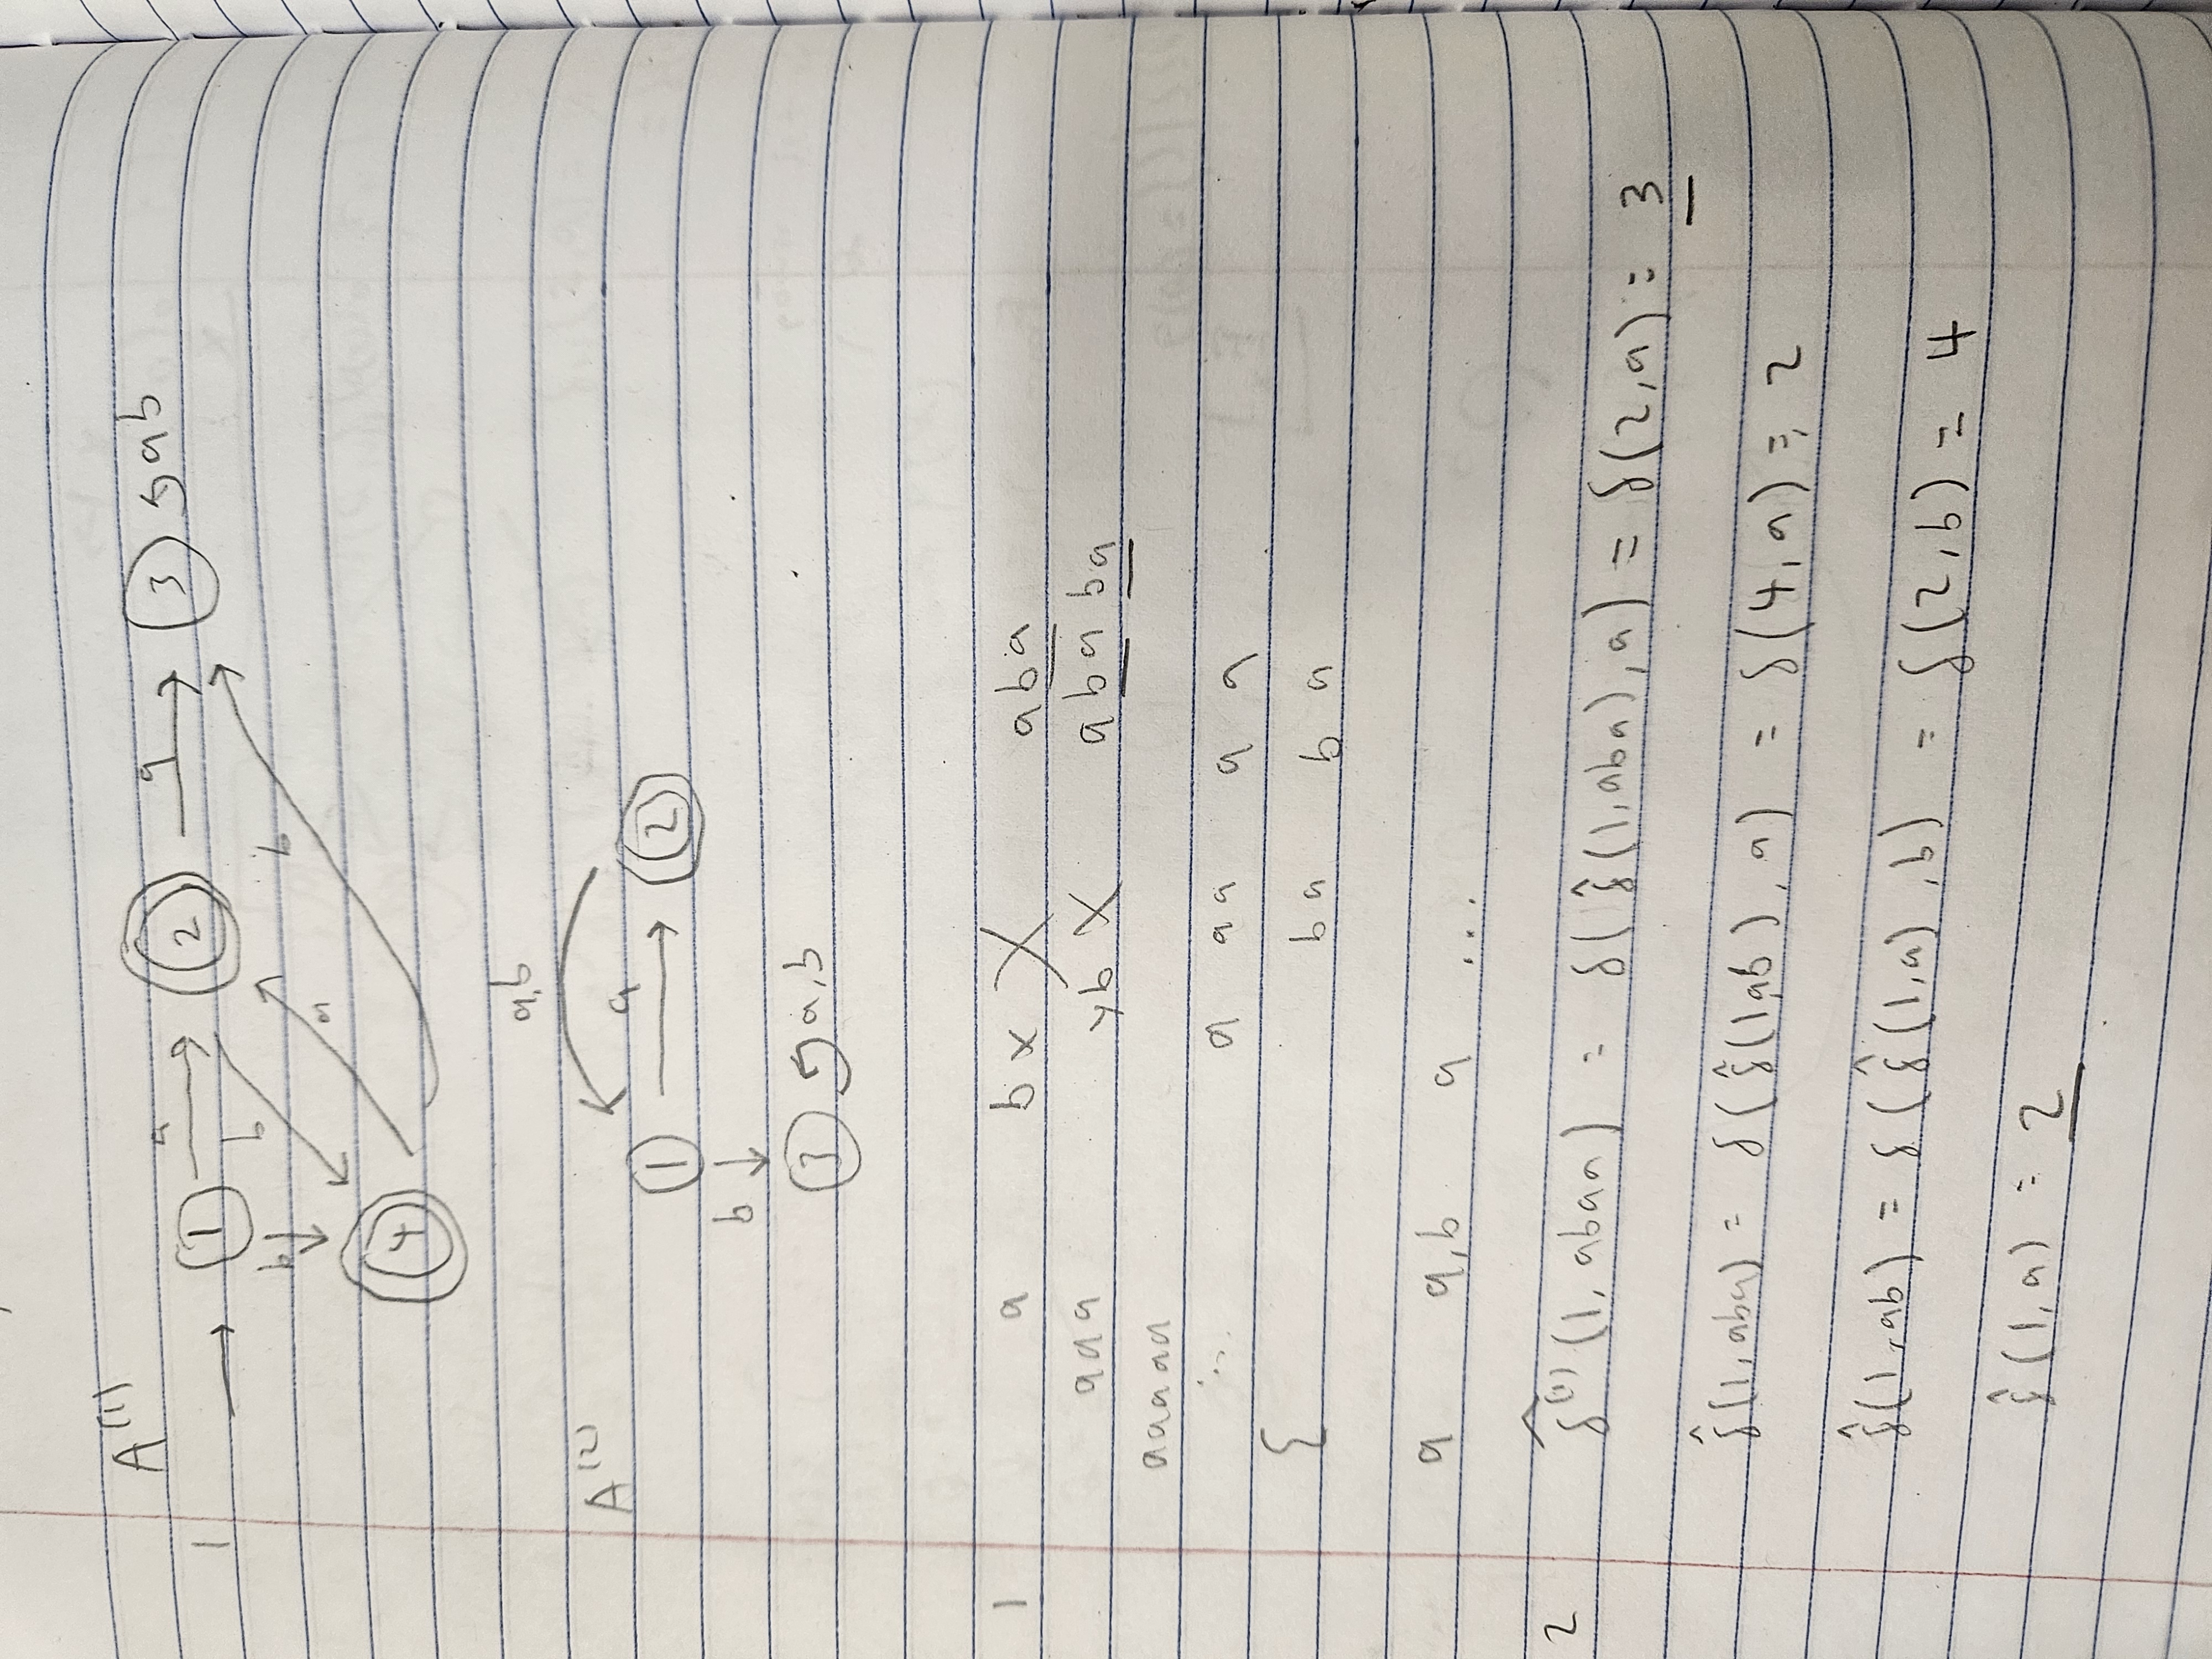 A⁽¹⁾
1 → 1 a 2 a 3 ab
b b a b
4
a,b
A⁽²⁾
1 a 2
b
3 a,b
1 a bx X aba
aaa yb X ababa
aaaaa
a aa a a
{ ba b a
a a,b a ...
2 δ̂⁽¹⁾(1, abaa) = δ(δ̂(1,aba), a) = δ(2,a) = 3
δ̂(1, aba) = δ(δ̂(1,ab), a) = δ(4,a) = 2
δ̂(1,ab) = δ(δ̂(1,a), b) = δ(2,b) = 4
δ̂(1,a) = 2